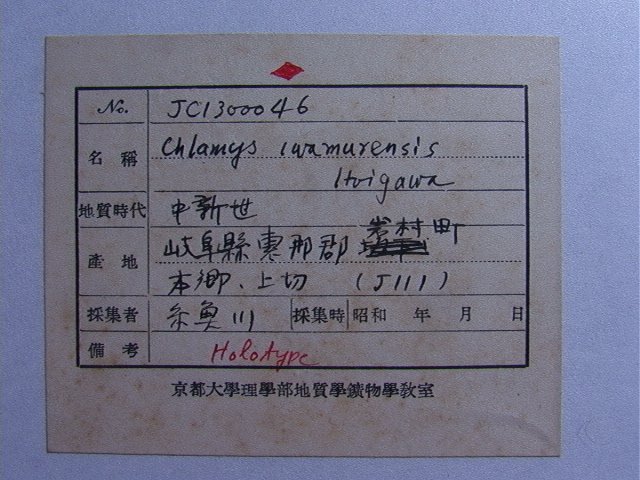 No. JC1300046
名稱 Chlamys iwamurensis
Itoigawa
地質時代 中新世
産地 岐阜縣惠那郡 岩村町
本郷、上切 (J111)
採集者 糸魚川 採集時 昭和 年 月 日
備考 Holotype
京都大學理學部地質學鑛物學教室